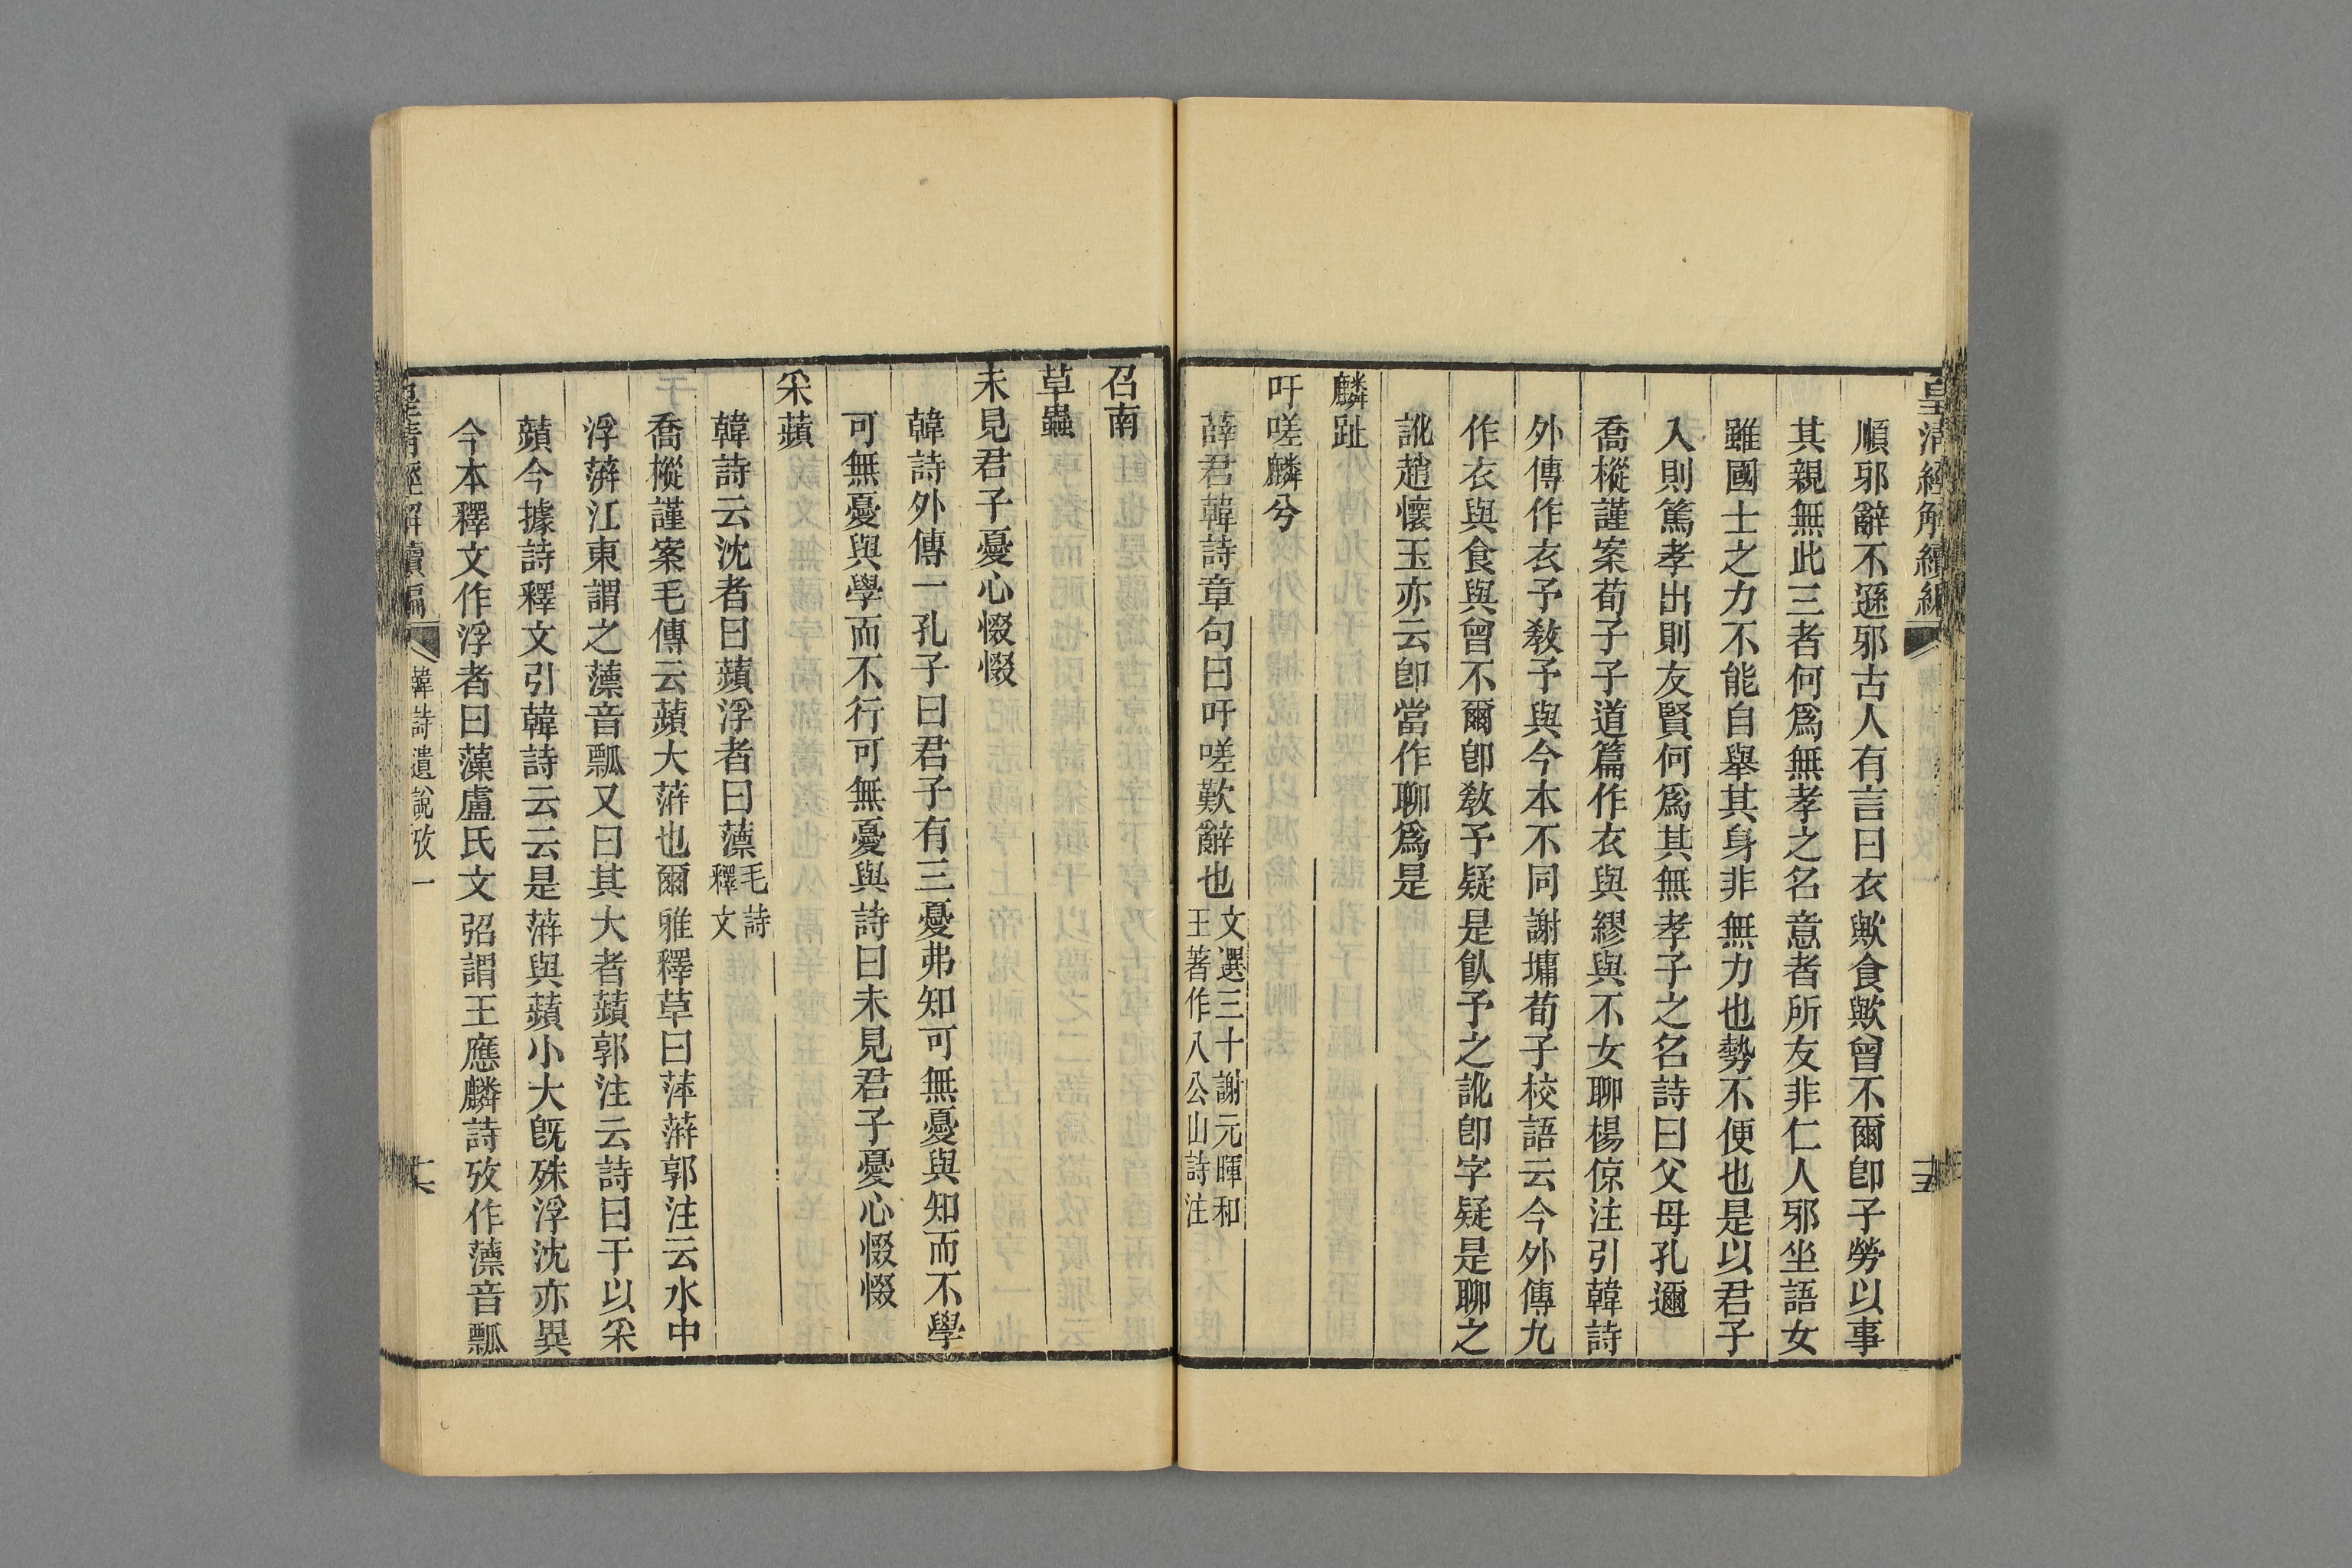 皇清經解續編
順邪辭不遜邪古人有言曰衣歟食歟曾不爾卽子勞以事
其親無此三者何爲無孝之名意者所友非仁人邪坐語女
雖國士之力不能自舉其身非無力也勢不便也是以君子
入則篤孝出則友賢何爲其無孝子之名詩曰父母孔邇
喬樅謹案荀子子道篇作衣與繆與不女聊楊倞注引韓詩
外傳作衣予敎予與今本不同謝墉荀子校語云今外傳九
作衣與食與曾不爾卽敎予疑是飮予之訛卽字疑是聊之
訛趙懷玉亦云卽當作聊爲是
麟趾
吁嗟麟兮
薛君韓詩章句曰吁嗟歎辭也文選三十謝元暉和
王著作八公山詩注
召南
草蟲
未見君子憂心惙惙
韓詩外傳一孔子曰君子有三憂弗知可無憂與知而不學
可無憂與學而不行可無憂與詩曰未見君子憂心惙惙
采蘋
韓詩云沈者曰蘋浮者曰薸毛詩
釋文
喬樅謹案毛傳云蘋大蓱也爾雅釋草曰苹蓱郭注云水中
浮蓱江東謂之薸音瓢又曰其大者蘋郭注云詩曰于以采
蘋今據詩釋文引韓詩云云是蓱與蘋小大旣殊浮沈亦異
今本釋文作浮者曰藻盧氏文弨謂王應麟詩攷作薸音瓢
皇清經解續編
韓詩遺說攷一